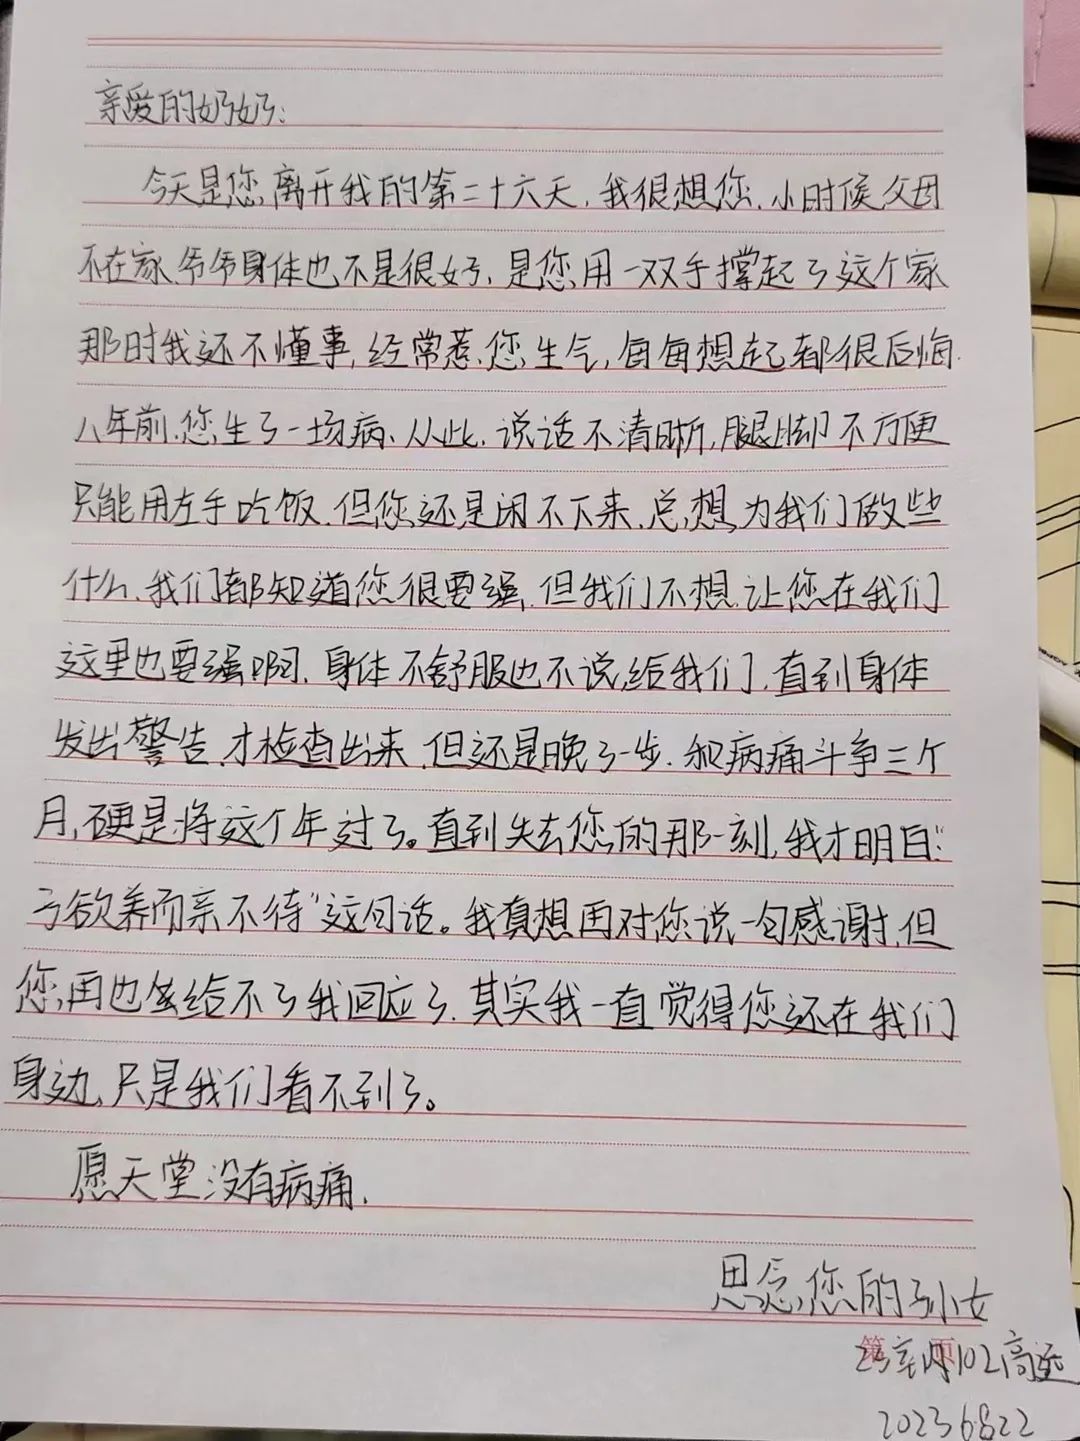 亲爱的奶奶:
今天是您离开我的第二十六天,我很想您,小时候父母
不在家,爷爷身体也不是很好,是您用一双手撑起了这个家
那时我还不懂事,经常惹您生气,每每想起都很后悔.
八年前,您生了一场病、从此,说话不清晰,腿脚不方便
只能用左手吃饭,但您还是闲不下来,总想为我们做些
什么,我们都知道您很要强,但我们不想让您在我们
这里也要强啊,身体不舒服也不说给我们,直到身体
发出警告,才检查出来,但还是晚了一步.和病痛斗争三个
月,硬是将这个年过了。直到失去您的那一刻,我才明白:“
子欲养而亲不待”这句话。我真想再对您说一句感谢,但
您再也给不了我回应了,其实我一直觉得您还在我们
身边,只是我们看不到了。
愿天堂没有病痛.
思念您的孙女
第 页
102高远